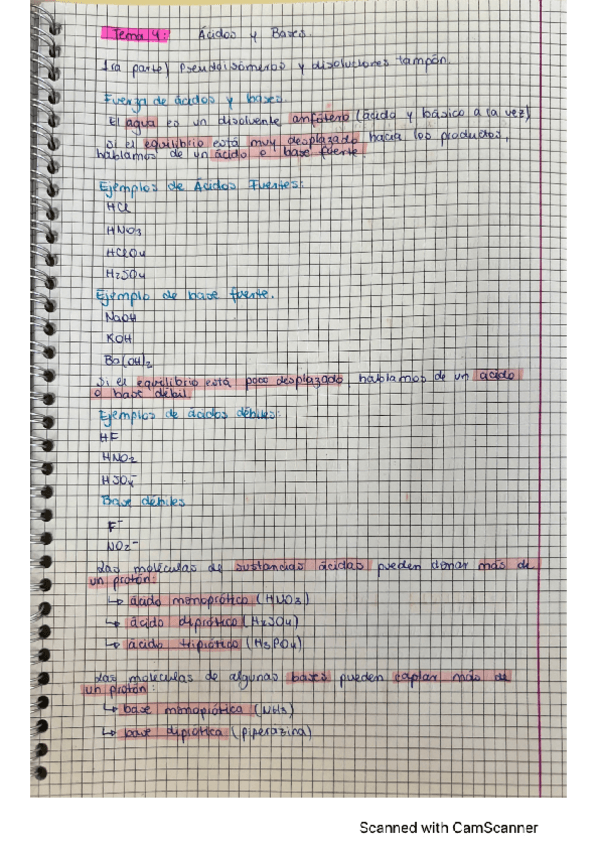 Tema 4: Ácidos y Bases.
1ra parte) Pseudoisómeros y disoluciones tampón.
Fuerza de ácidos y bases.
El agua es un disolvente anfótero (ácido y básico a la vez)
Si el equilibrio está muy desplazado hacia los productos,
hablamos de un ácido o base fuerte.
Ejemplos de Ácidos Fuertes:
HCl
HNO3
HClO4
H2SO4
Ejemplo de base fuerte.
NaOH
KOH
Ba(OH)2
Si el equilibrio está poco desplazado, hablamos de un ácido
o base débil.
Ejemplos de ácidos débiles:
HF
HNO2
HSO4-
Base débiles
F-
NO2-
Las moléculas de sustancias ácidas pueden donar más de
un protón:
↳ ácido monoprótico (HNO3)
↳ ácido diprótico (H2SO4)
↳ ácido triprótico (H3PO4)
Las moléculas de algunas bases pueden captar más de
un protón:
↳ base monoprótica (NH3)
↳ base diprótica (piperazina)
Scanned with CamScanner